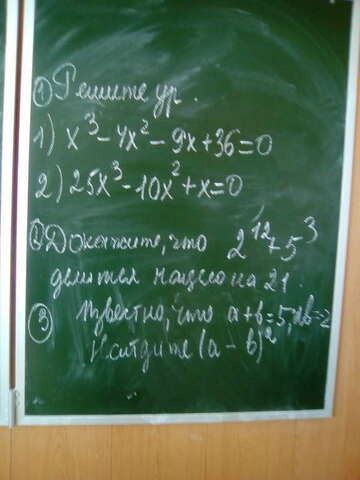 ① Решите ур.
1) x³ - 4x² - 9x + 36 = 0
2) 25x³ - 10x² + x = 0
② Докажите, что 2¹² + 5³
делится нацело на 21.
③ Известно, что a + b = 5, ab = 2
Найдите (a - b)²